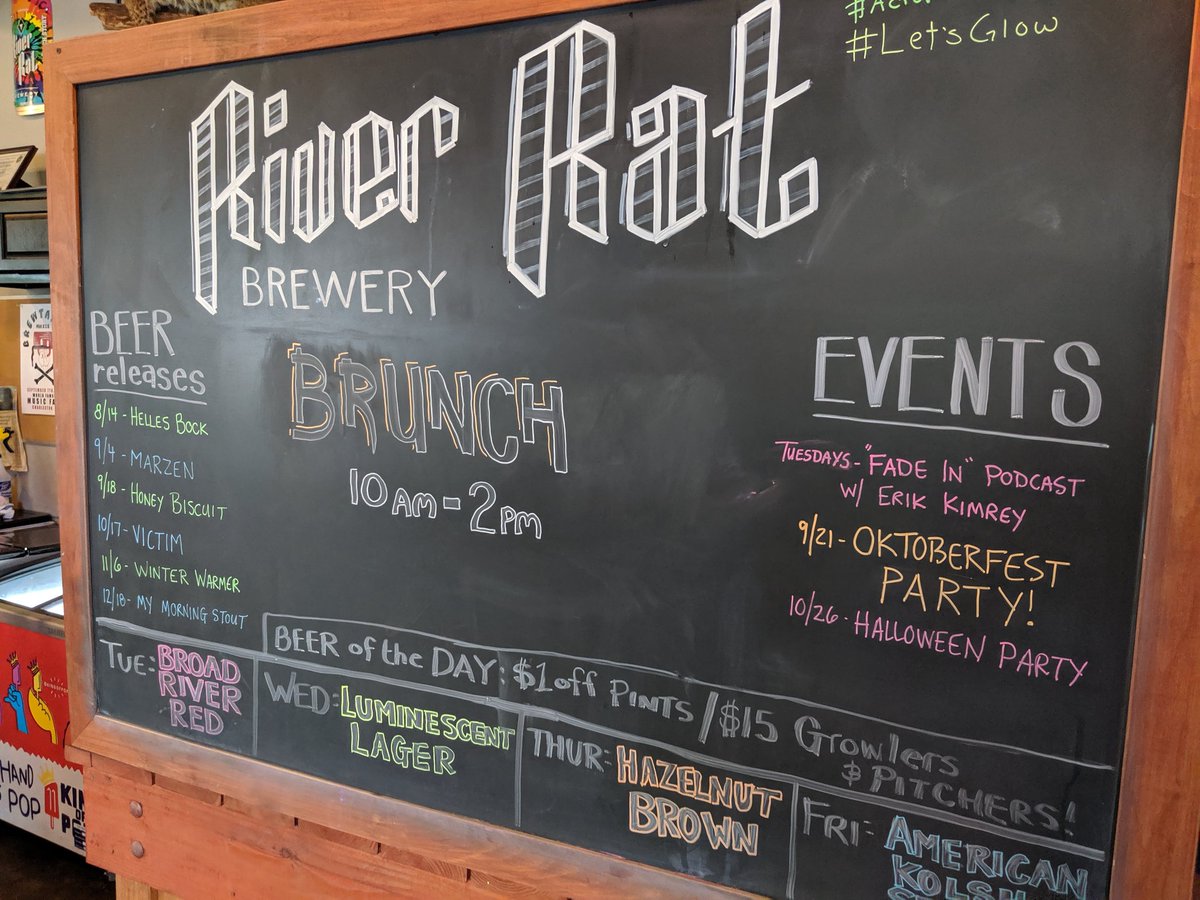 #Let'sGlow
River Rat
BREWERY
BEER
releases
8/14 - HELLES BOCK
9/4 - MARZEN
9/18 - HONEY BISCUIT
10/17 - VICTIM
11/6 - WINTER WARMER
12/18 - MY MORNING STOUT
BRUNCH
10AM - 2PM
EVENTS
TUESDAYS - "FADE IN" PODCAST
W/ ERIK KIMREY
9/21 - OKTOBERFEST
PARTY!
10/26 - HALLOWEEN PARTY
BEER of the DAY: $1 off PINTS / $15 Growlers
& PITCHERS!
TUE: BROAD
RIVER
RED
WED: LUMINESCENT
LAGER
THUR: HAZELNUT
BROWN
FRI: AMERICAN
KOLSH
HAND
POP
MUSIC